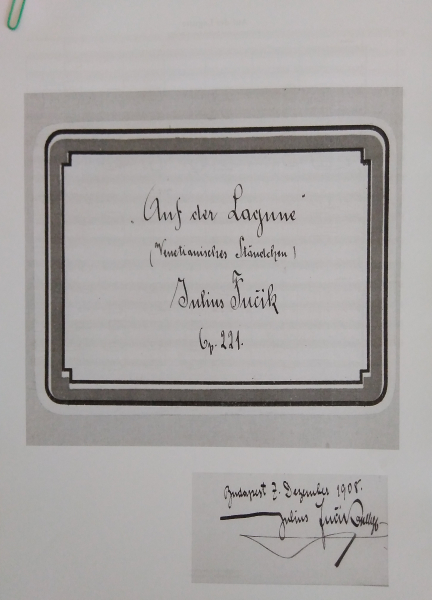 „Auf der Lagune“
(Venetianisches Ständchen)
Julius Fučik
Op. 221.
Budapest 7. Dezember 1908.
Julius Fučik